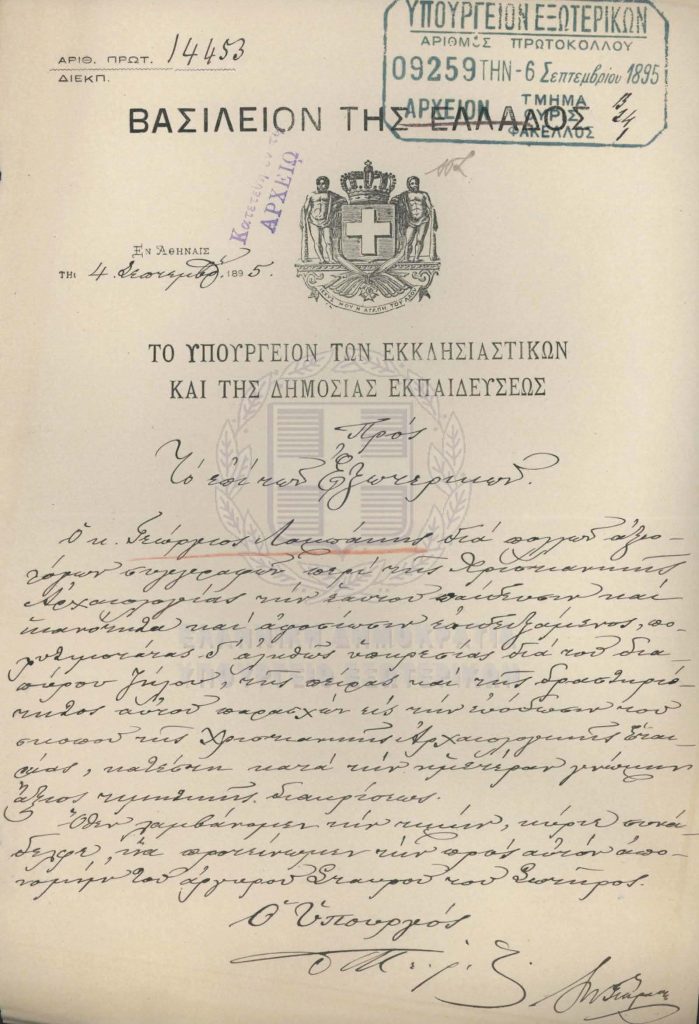 ΑΡΙΘ. ΠΡΩΤ. 14453
ΔΙΕΚΠ.
ΥΠΟΥΡΓΕΙΟΝ ΕΞΩΤΕΡΙΚΩΝ
ΑΡΙΘΜΟΣ ΠΡΩΤΟΚΟΛΛΟΥ
09259 ΤΗΝ -6 Σεπτεμβρίου 1895
ΑΡΧΕΙΟΝ ΤΜΗΜΑ Β
ΦΑΚΕΛΛΟΣ
ΒΑΣΙΛΕΙΟΝ ΤΗΣ ΕΛΛΑΔΟΣ
ΑΡΧΕΙΩ
ΕΝ ΑΘΗΝΑΙΣ
ΤΗΙ 4 Σεπτεμβρ. 1895.
ΤΟ ΥΠΟΥΡΓΕΙΟΝ ΤΩΝ ΕΚΚΛΗΣΙΑΣΤΙΚΩΝ
ΚΑΙ ΤΗΣ ΔΗΜΟΣΙΑΣ ΕΚΠΑΙΔΕΥΣΕΩΣ
Πρὸς
Τὸ ἐπὶ τῶν Ἐξωτερικῶν.
Ὁ κ. Γεώργιος Λαμπάκης διὰ πολλῶν ἀξιο-
λόγων συγγραφῶν περὶ τῆς Χριστιανικῆς
Ἀρχαιολογίας τὴν ἑαυτοῦ παίδευσιν καὶ
ἱκανότητα καὶ ἀφοσίωσιν ἐπιδειξάμενος, πο-
λυτιμοτάτας δ' ἀληθῶς ὑπηρεσίας διὰ τοῦ δια-
πύρου ζήλου, τῆς πείρας καὶ τῆς δραστηριό-
τητος αὐτοῦ παρασχὼν εἰς τὴν εὐόδωσιν τοῦ
σκοποῦ τῆς Χριστιανικῆς Ἀρχαιολογικῆς Ἑται-
ρίας, κατέστη κατὰ τὴν ἡμετέραν γνώμην
ἄξιος τιμητικῆς διακρίσεως.
Ὅθεν λαμβάνομεν τὴν τιμήν, κύριε συνά-
δελφε, ἵνα προτείνωμεν τὴν πρὸς αὐτὸν ἀπο-
νομὴν τοῦ ἀργυροῦ Σταυροῦ τοῦ Σωτῆρος.
Ὁ Ὑπουργὸς
ΕΛΛΗΝΙΚΗ ΔΗΜΟΚΡΑΤΙΑ
ΥΠΟΥΡΓΕΙΟ ΕΞΩΤΕΡΙΚΩΝ